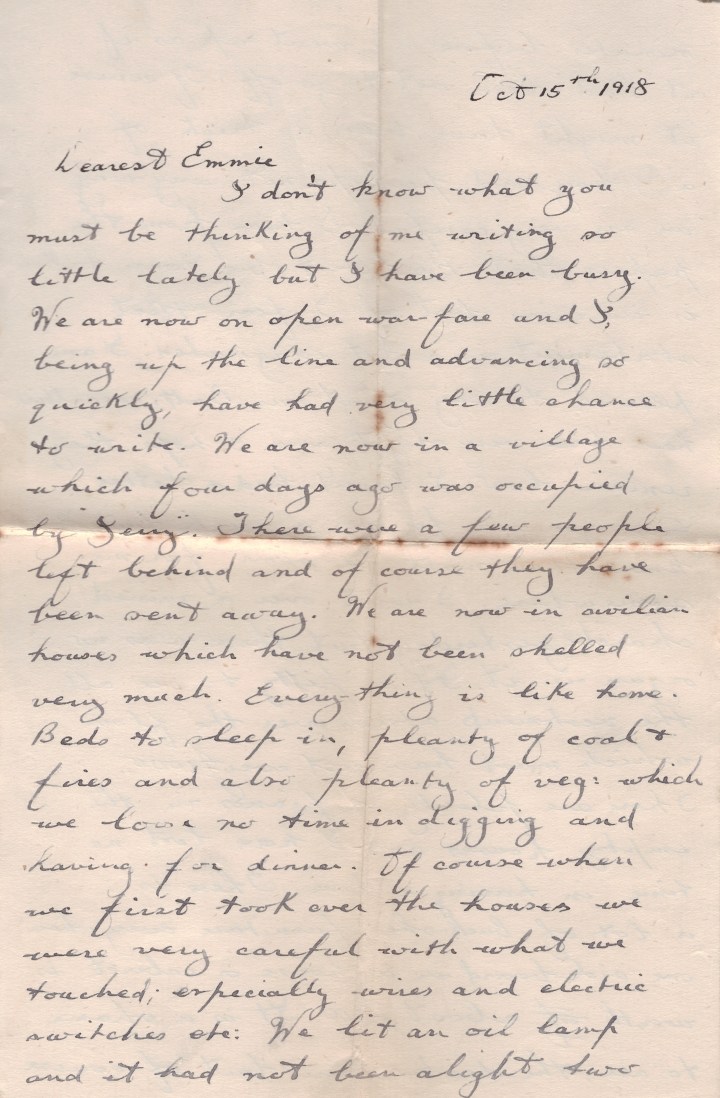 Oct 15th 1918
Dearest Emmie
I don't know what you
must be thinking of me writing so
little lately but I have been bussy.
We are now on open warfare and I,
being up the line and advancing so
quickly, have had very little chance
to write. We are now in a village
which four days ago was occupied
by "Jerry". There were a few people
left behind and of course they have
been sent away. We are now in civilian
houses which have not been shelled
very much. Every-thing is like home.
Beds to sleep in, pleanty of coal &
fires and also pleanty of veg: which
we loose no time in digging and
having for dinner. Of course when
we first took over the houses we
were very careful with what we
touched; especially wires and electric
switches etc: We lit an oil lamp
and it had not been alight two